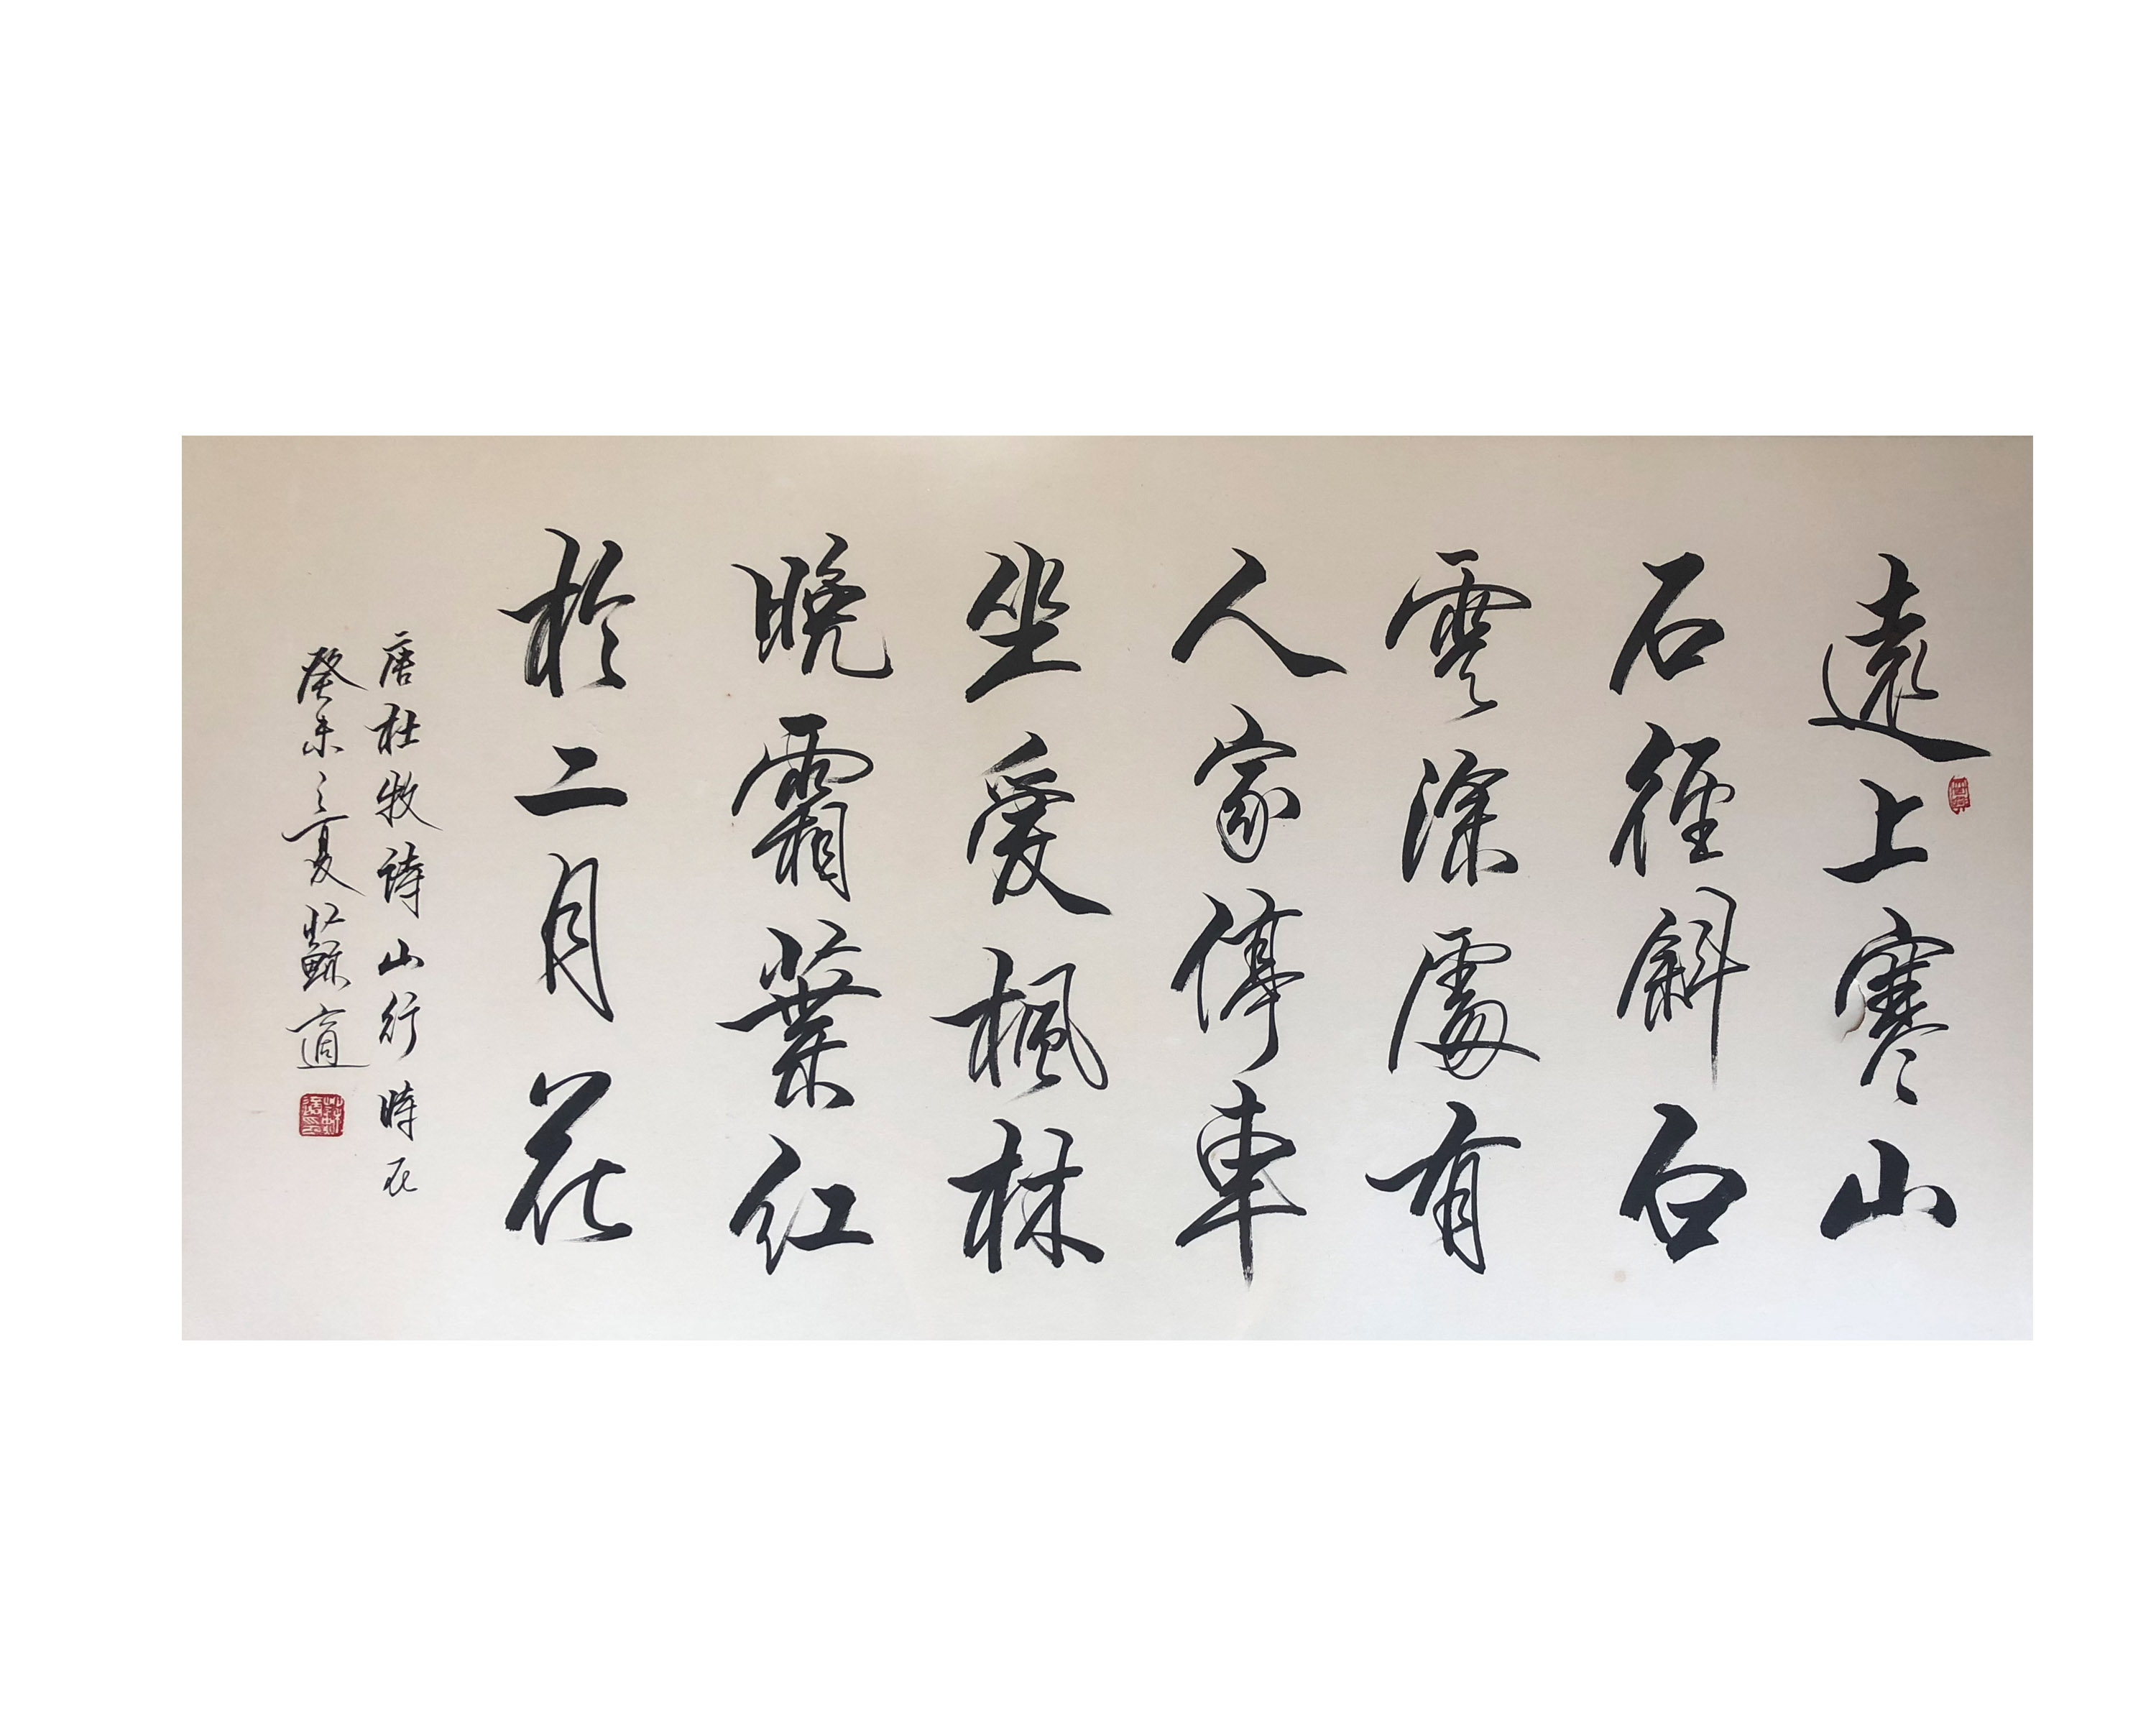 遠上寒山
石徑斜白
雲深處有
人家停車
坐愛楓林
晚霜葉紅
於二月花
唐杜牧詩山行時在
癸未之夏蘇適